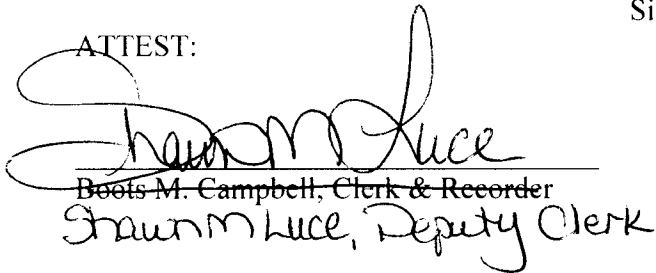 Si
ATTEST:
Shawn M Luce
Boots M. Campbell, Clerk & Recorder
Shawn M Luce, Deputy Clerk